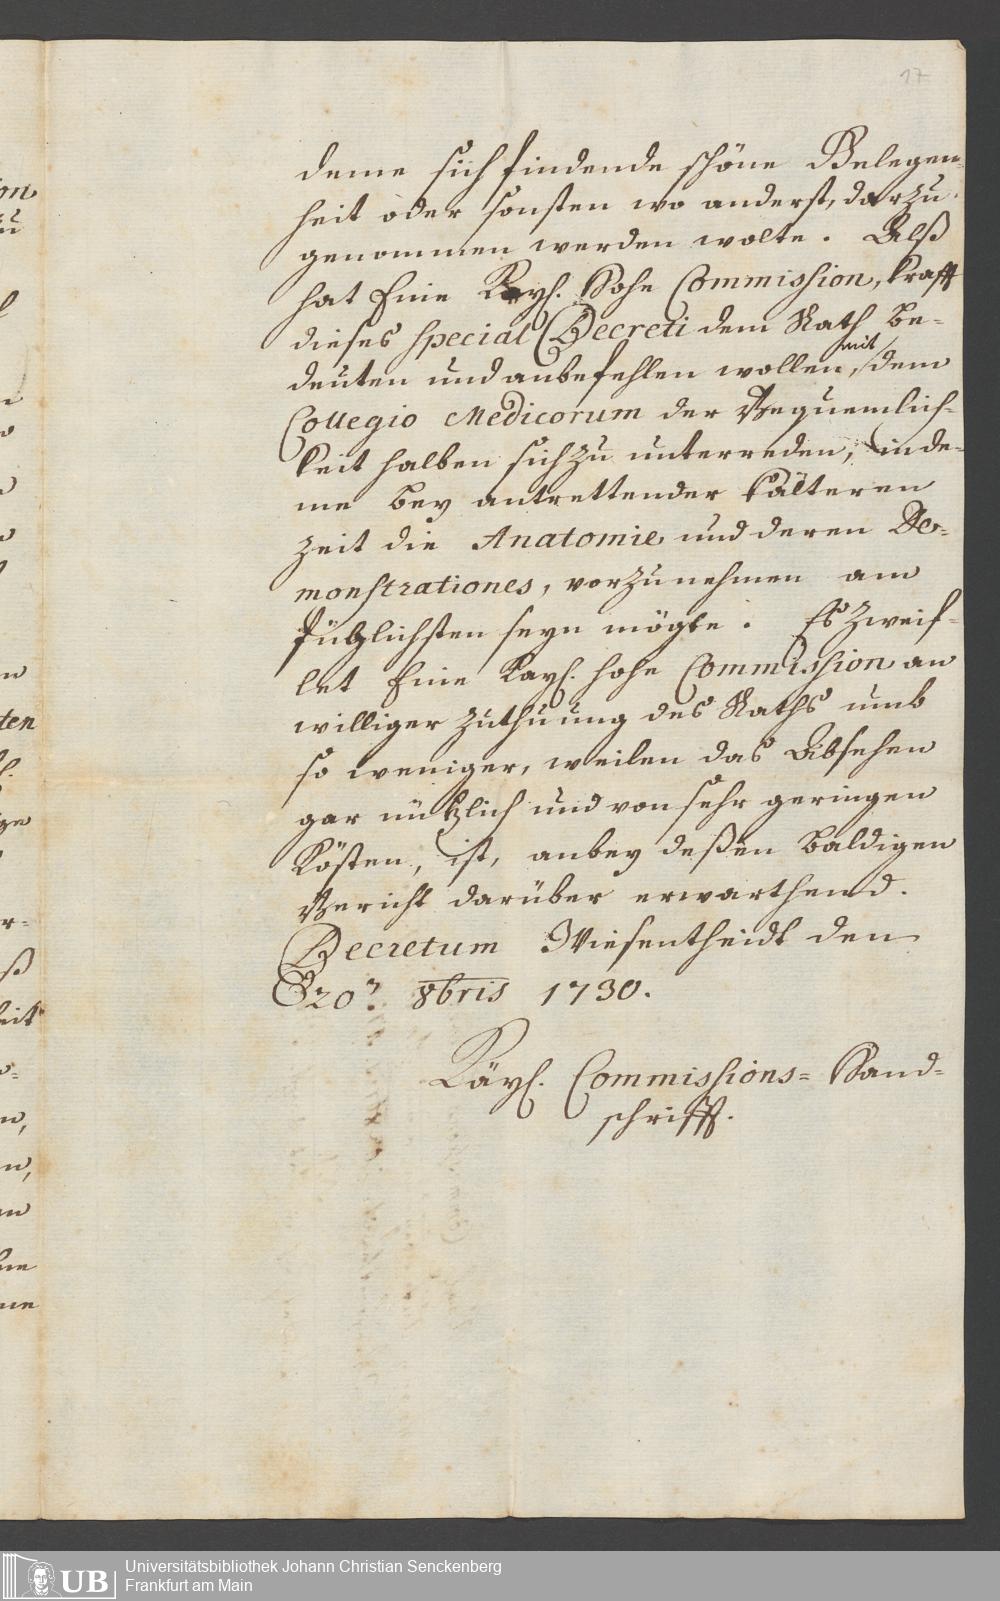 17
deme sich findende schöne Gelegen-
heit oder sonsten wo anderst, darzu
genommen werden wolte. Alß
hat Eine Kayß. Hohe Commission, krafft
dieses special Decreti dem Rath be-
deuten und anbefehlen wollen, mit dem
Collegio Medicorum der Bequemlich-
keit halben sich zu unterreden, inde-
me bey antrettender kälteren
zeit die Anatomie und deren De-
monstrationes, vorzunehmen am
füglichsten seyn mögte. Es zweif-
let Eine Kayß. hohe Commission an
williger zuthuung des Raths umb
so weniger, weilen das Absehen
gar nützlich und von sehr geringen
Kösten, ist, anbey deßen baldigen
Bericht darüber erwarthend.
Decretum Wiesentheidt den
20. 8bris 1730.
Käyß. Commissions= Hand-
schrifft.
on
zu
ten
ge
r-
ß
eit
n,
n,
Universitätsbibliothek Johann Christian Senckenberg
UB Frankfurt am Main